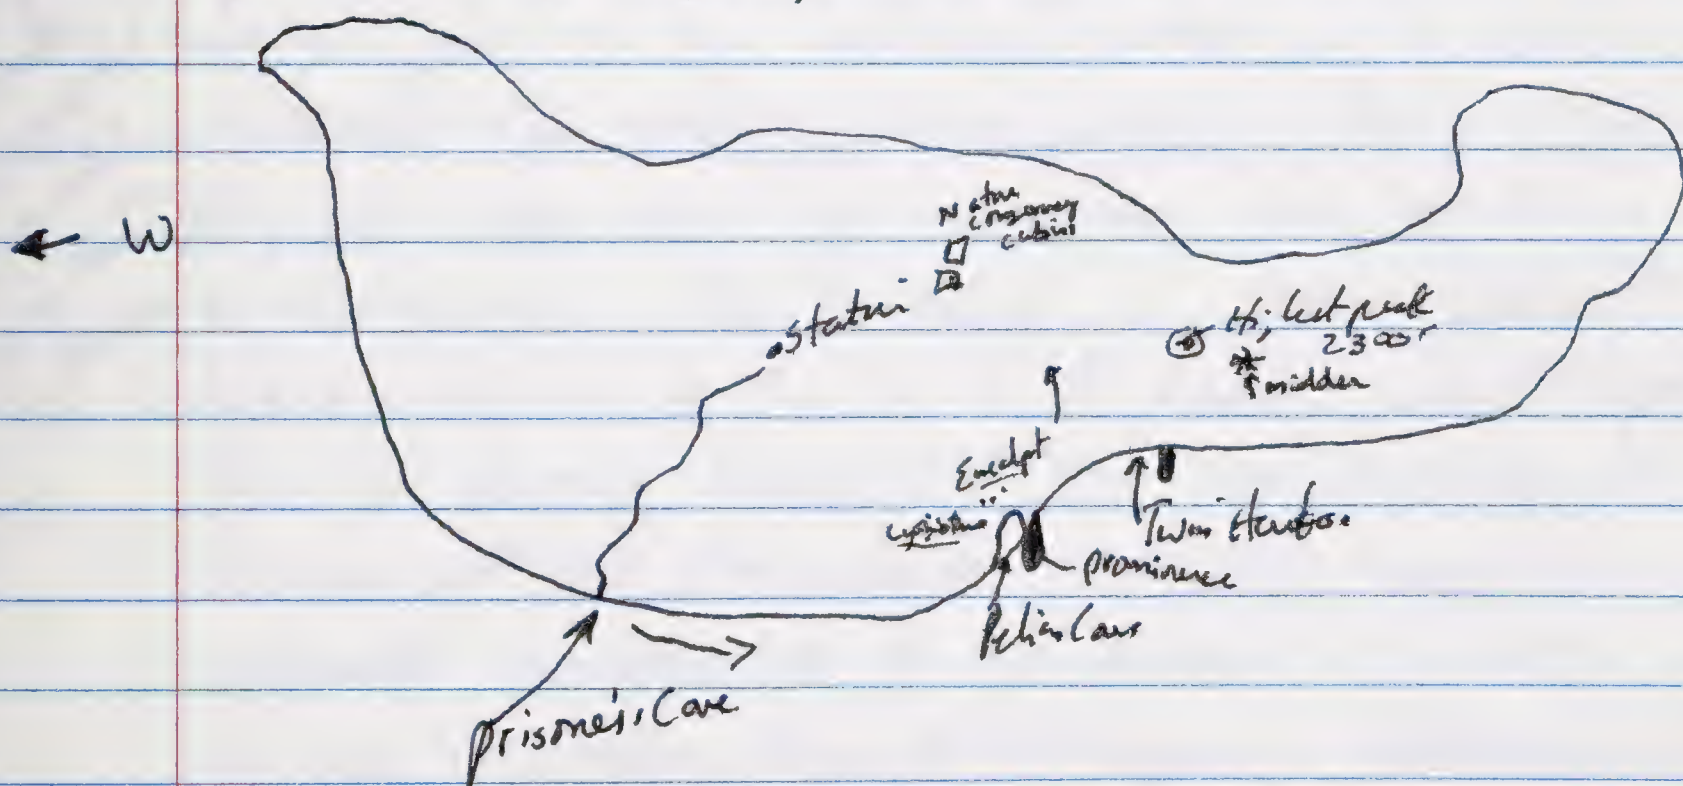 W
Nature
Conservancy
cabins
Station
Highest peak
2300'
midden
Eucalypt
Twin Harbors
prominence
Pelican Cove
Prisoner's Cove